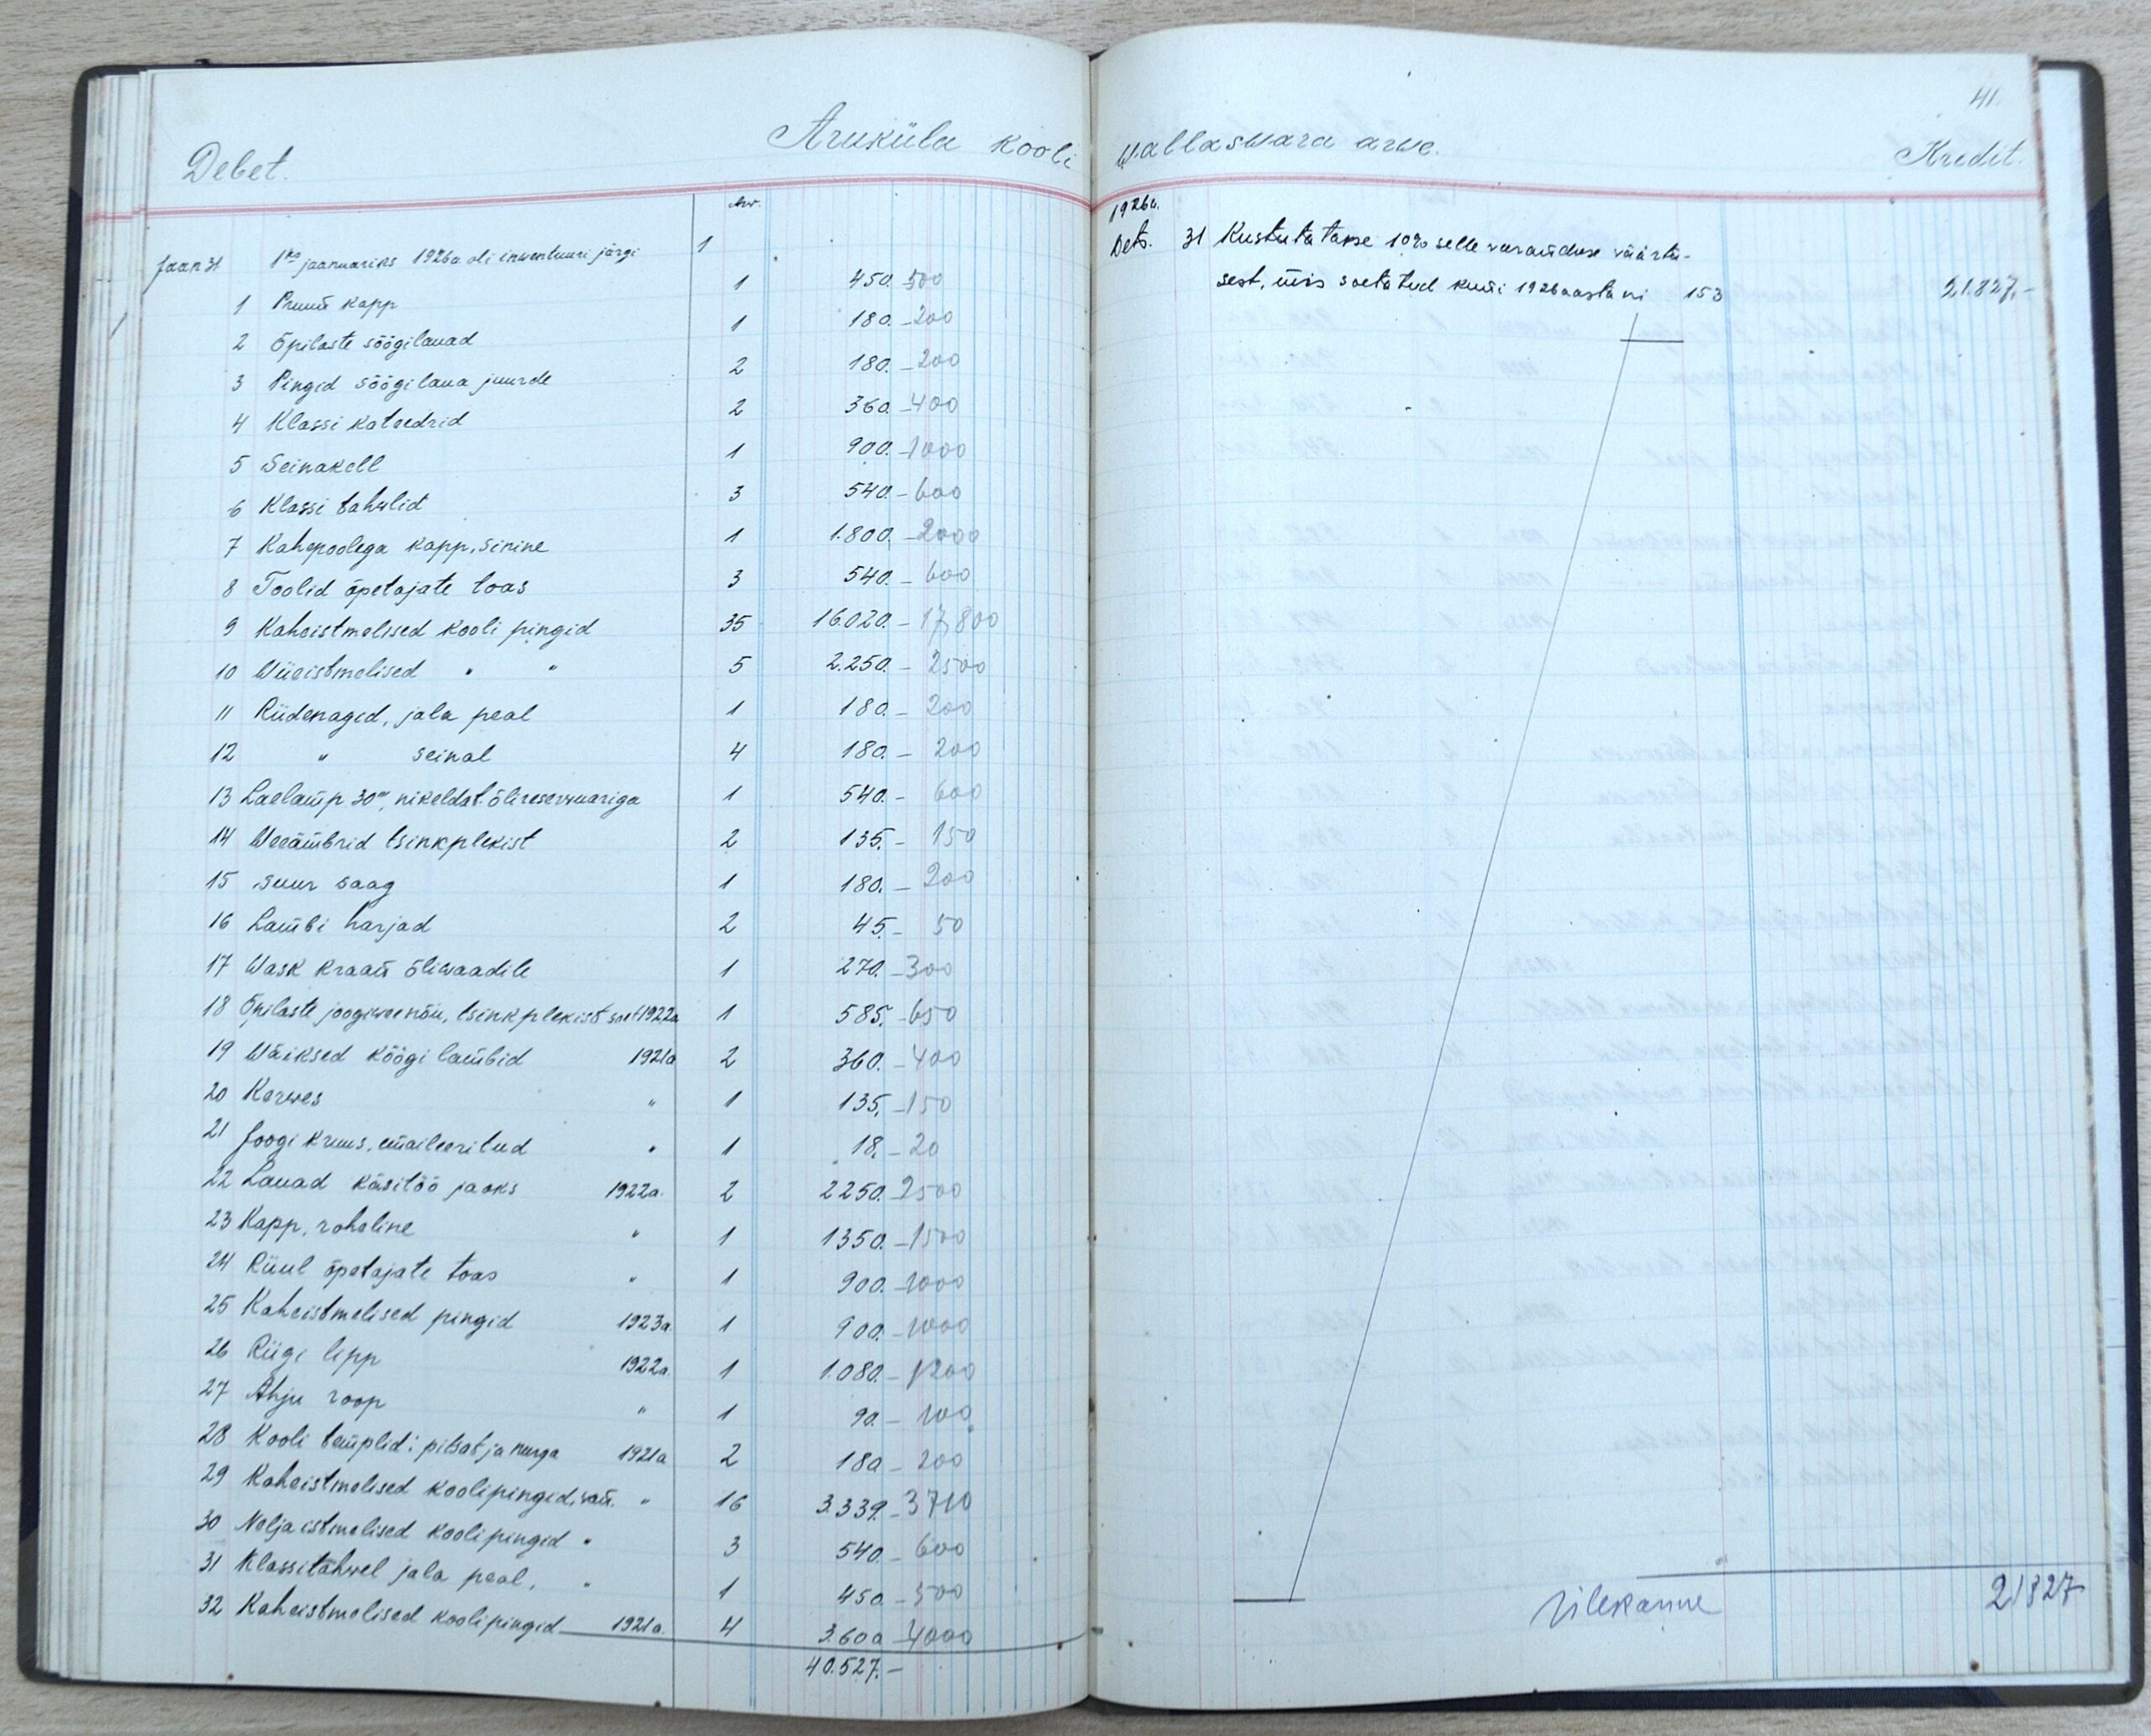 Debet.
Aruküla kooli
Arv.
Jaan 31 1ks jaanuariks 1926a oli inwentuuri järgi 1
1 Pruun kapp 1 450. 500
2 Õpilaste söögilauad 1 180.- 200
3 Pingid söögilaua juurde 2 180.- 200
4 Klassi kateedrid 2 360.- 400
5 Seinakell 1 900.- 1000
6 Klassi tahwlid 3 540.- 600
7 Kahepoolega kapp, sinine 1 1.800.- 2000
8 Toolid õpetajate toas 3 540.- 600
9 Kaheistmelised kooli pingid 35 16.020.- 17,800
10 Wiieistmelised " " 5 2.250.- 2500
11 Riidenagid, jala peal 1 180.- 200
12 " seinal 4 180.- 200
13 Laelamp 30''', nikeldat. õlireserwuariga 1 540.- 600
14 Weeämbrid tsinkplekist 2 135.- 150
15 Suur saag 1 180.- 200
16 Lambi harjad 2 45.- 50
17 Wask kraan õliwaadile 1 270.- 300
18 Õpilaste joogiweenõu, tsinkplekist soet 1922a 1 585.- 650
19 Wäiksed köögi lambid 1921a 2 360.- 400
20 Kerwes " 1 135.- 150
21 Joogi kruus, emaileeritud " 1 18.- 20
22 Lauad käsitöö jaoks 1922a. 2 2250. 2500
23 Kapp, roheline " 1 1350.- 1500
24 Riiul õpetajate toas " 1 900.- 1000
25 Kaheistmelised pingid 1923a. 1 900.- 1000
26 Riigi lipp 1922a. 1 1.080.- 1200
27 Ahju roop " 1 90.- 100
28 Kooli templid: pitsat ja nurga 1921a 2 180 - 200
29 Kaheistmelised koolipingid, wan. " 16 3.339.- 3710
30 Neljaistmelised koolipingid " 3 540.- 600
31 Klassitahwel jala peal, " 1 450.- 500
32 Kaheistmelised koolipingid 1921a. 4 3.600 - 4000
40.527.-
41.
wallaswara arwe.
Kredit.
1926a.
Dets. 31 Kustutatakse 10% selle waranduse väärtu-
sest, mis soetatud kuni 1926 aastani 153 21.827.-
Ülekanne 21827